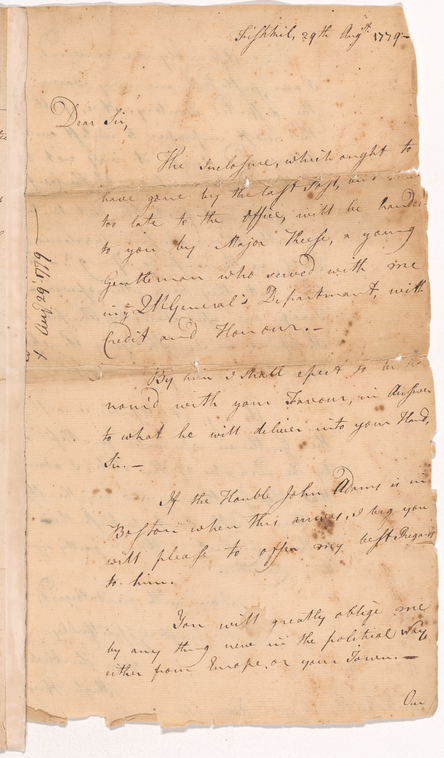 Fishkil, 29th Augt. 1779-
Dear Sir,
The Inclosure, which ought to
have gone by the last Post, was
too late to the office, will be handed
to you by Major Reese, a young
Gentleman who served with me
in ye Qr. General's Department, with
Credit and Honour.-
By him I shall expect to be
nour'd with your Favour, in Answer
to what he will deliver into your Hand,
Sir.-
If the Honble John Adams is in
Boston when this arrives, I beg you
will please to offer my best Regards
to him.
You will greatly oblige me
by any thing new in the political Way
either from Europe or your Town.-
Our
+ Aug 29, 1779